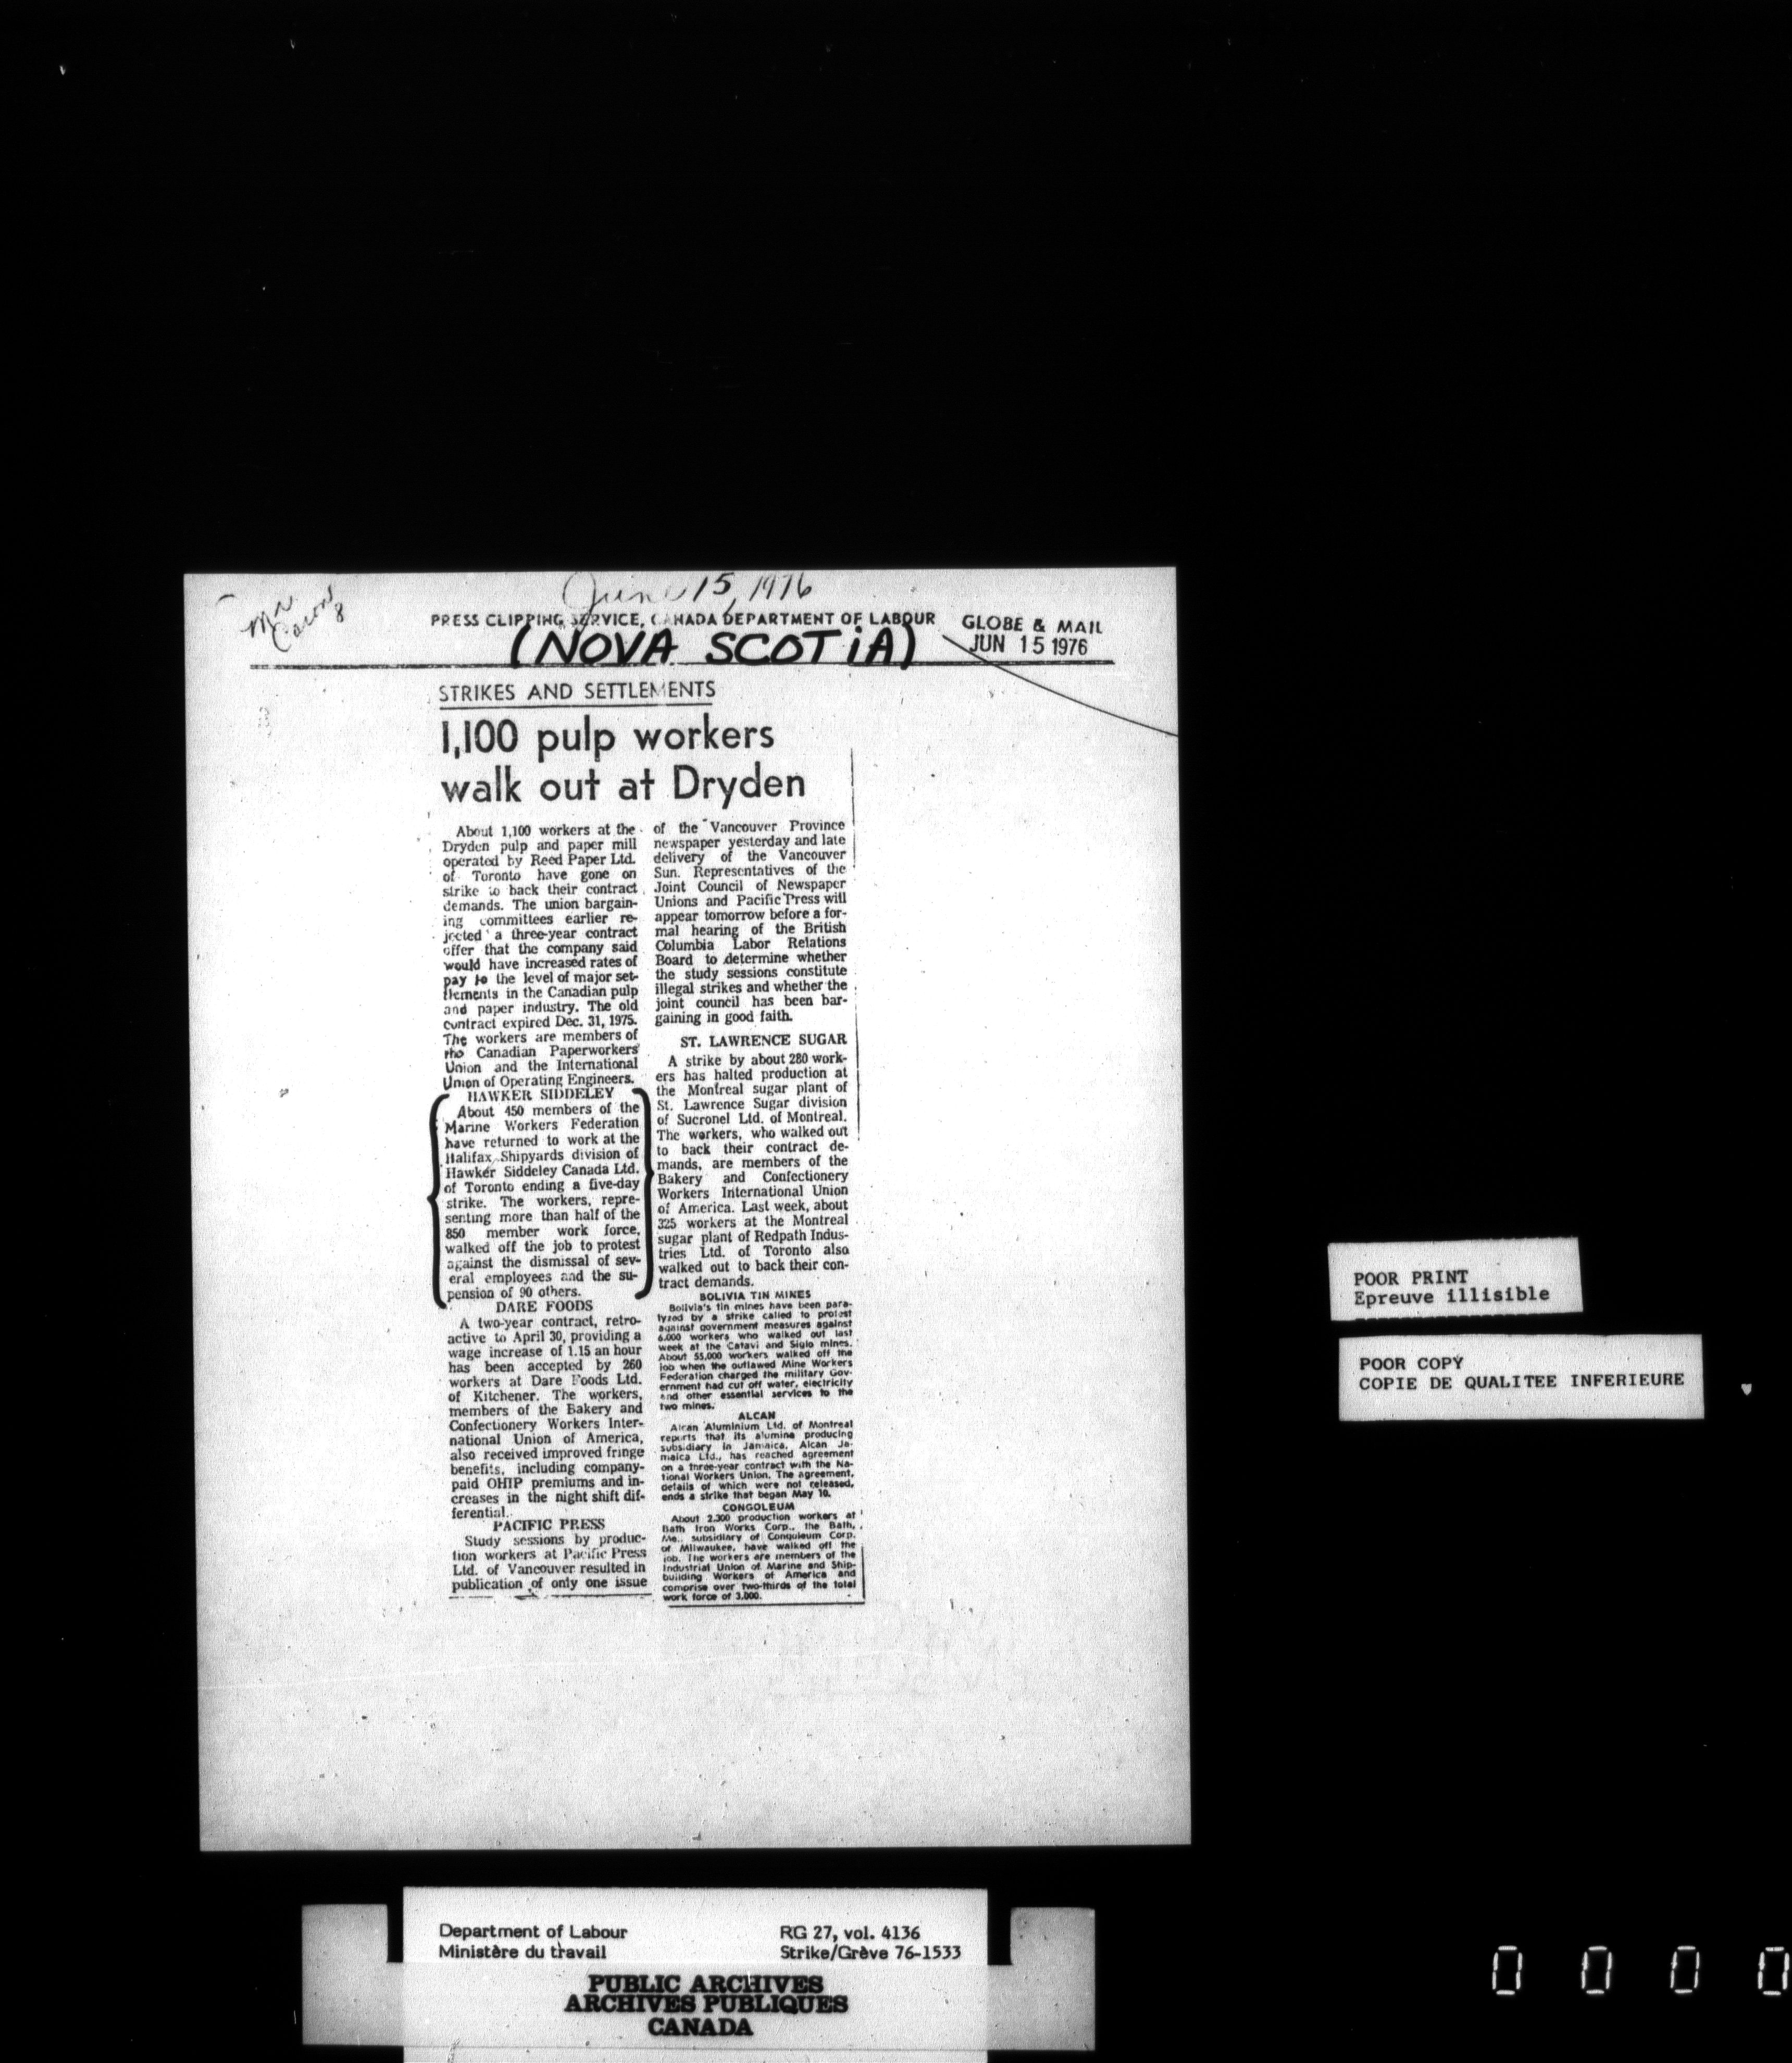 June 15, 1976
PRESS CLIPPING SERVICE, CANADA DEPARTMENT OF LABOUR
GLOBE & MAIL
JUN 15 1976
(NOVA SCOTiA)
STRIKES AND SETTLEMENTS
1,100 pulp workers
walk out at Dryden
About 1,100 workers at the
Dryden pulp and paper mill
operated by Reed Paper Ltd.
of Toronto have gone on
strike to back their contract
demands. The union bargain-
ing committees earlier re-
jected a three-year contract
offer that the company said
would have increased rates of
pay to the level of major set-
tlements in the Canadian pulp
and paper industry. The old
contract expired Dec. 31, 1975.
The workers are members of
the Canadian Paperworkers
Union and the International
Union of Operating Engineers.
HAWKER SIDDELEY
About 450 members of the
Marine Workers Federation
have returned to work at the
Halifax Shipyards division of
Hawker Siddeley Canada Ltd.
of Toronto ending a five-day
strike. The workers, repre-
senting more than half of the
850 member work force,
walked off the job to protest
against the dismissal of sev-
eral employees and the su-
pension of 90 others.
DARE FOODS
A two-year contract, retro-
active to April 30, providing a
wage increase of 1.15 an hour
has been accepted by 260
workers at Dare Foods Ltd.
of Kitchener. The workers,
members of the Bakery and
Confectionery Workers Inter-
national Union of America,
also received improved fringe
benefits, including company-
paid OHIP premiums and in-
creases in the night shift dif-
ferential.
PACIFIC PRESS
Study sessions by produc-
tion workers at Pacific Press
Ltd. of Vancouver resulted in
publication of only one issue
of the Vancouver Province
newspaper yesterday and late
delivery of the Vancouver
Sun. Representatives of the
Joint Council of Newspaper
Unions and Pacific Press will
appear tomorrow before a for-
mal hearing of the British
Columbia Labor Relations
Board to determine whether
the study sessions constitute
illegal strikes and whether the
joint council has been bar-
gaining in good faith.
ST. LAWRENCE SUGAR
A strike by about 280 work-
ers has halted production at
the Montreal sugar plant of
St. Lawrence Sugar division
of Sucronel Ltd. of Montreal.
The workers, who walked out
to back their contract de-
mands, are members of the
Bakery and Confectionery
Workers International Union
of America. Last week, about
325 workers at the Montreal
sugar plant of Redpath Indus-
tries Ltd. of Toronto also
walked out to back their con-
tract demands.
BOLIVIA TIN MINES
Bolivia's tin mines have been para-
lyzed by a strike called to protest
against government measures against
6,000 workers who walked out last
week at the Catavi and Siglo mines.
About 55,000 workers walked off the
job when the outlawed Mine Workers
Federation charged the military Gov-
ernment had cut off water, electricity
and other essential services to the
two mines.
ALCAN
Alcan Aluminium Ltd. of Montreal
reports that its alumina producing
subsidiary in Jamaica, Alcan Ja-
maica Ltd., has reached agreement
on a three-year contract with the Na-
tional Workers Union. The agreement,
details of which were not released,
ends a strike that began May 10.
CONGOLEUM
About 2,300 production workers at
Bath Iron Works Corp., the Bath,
Me., subsidiary of Congoleum Corp.
of Milwaukee, have walked off the
job. The workers are members of the
Industrial Union of Marine and Ship-
building Workers of America and
comprise over two-thirds of the total
work force of 3,000.
POOR PRINT
Epreuve illisible
POOR COPY
COPIE DE QUALITEE INFERIEURE
Department of Labour
Ministère du travail
RG 27, vol. 4136
Strike/Grève 76-1533
PUBLIC ARCHIVES
ARCHIVES PUBLIQUES
CANADA
0 0 0 0